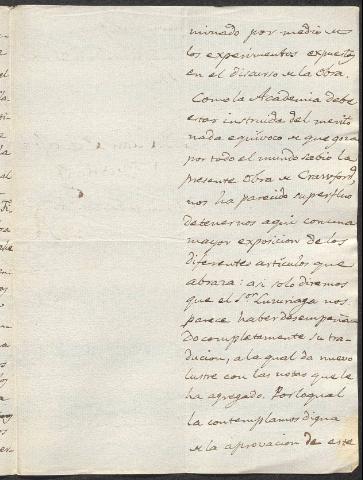 minado por medio de
los experimentos expuestos
en el discurso de la obra.
Como la Academia debe
estar instruida del merito
nada equivoco de que goza
por todo el mundo sabio la
presente Obra de Crawford,
nos ha parecido superfluo
detenernos aqui con una
mayor exposicion de los
diferentes articulos que
abraza: asi solo diremos
que el Sor. Luzuriaga nos
parece haber desempeña
do completamente su tra-
duccion, a la qual da nuevo
lustre con las notas que le
ha agregado. Por lo qual
la contemplamos digna
de la aprovacion de este